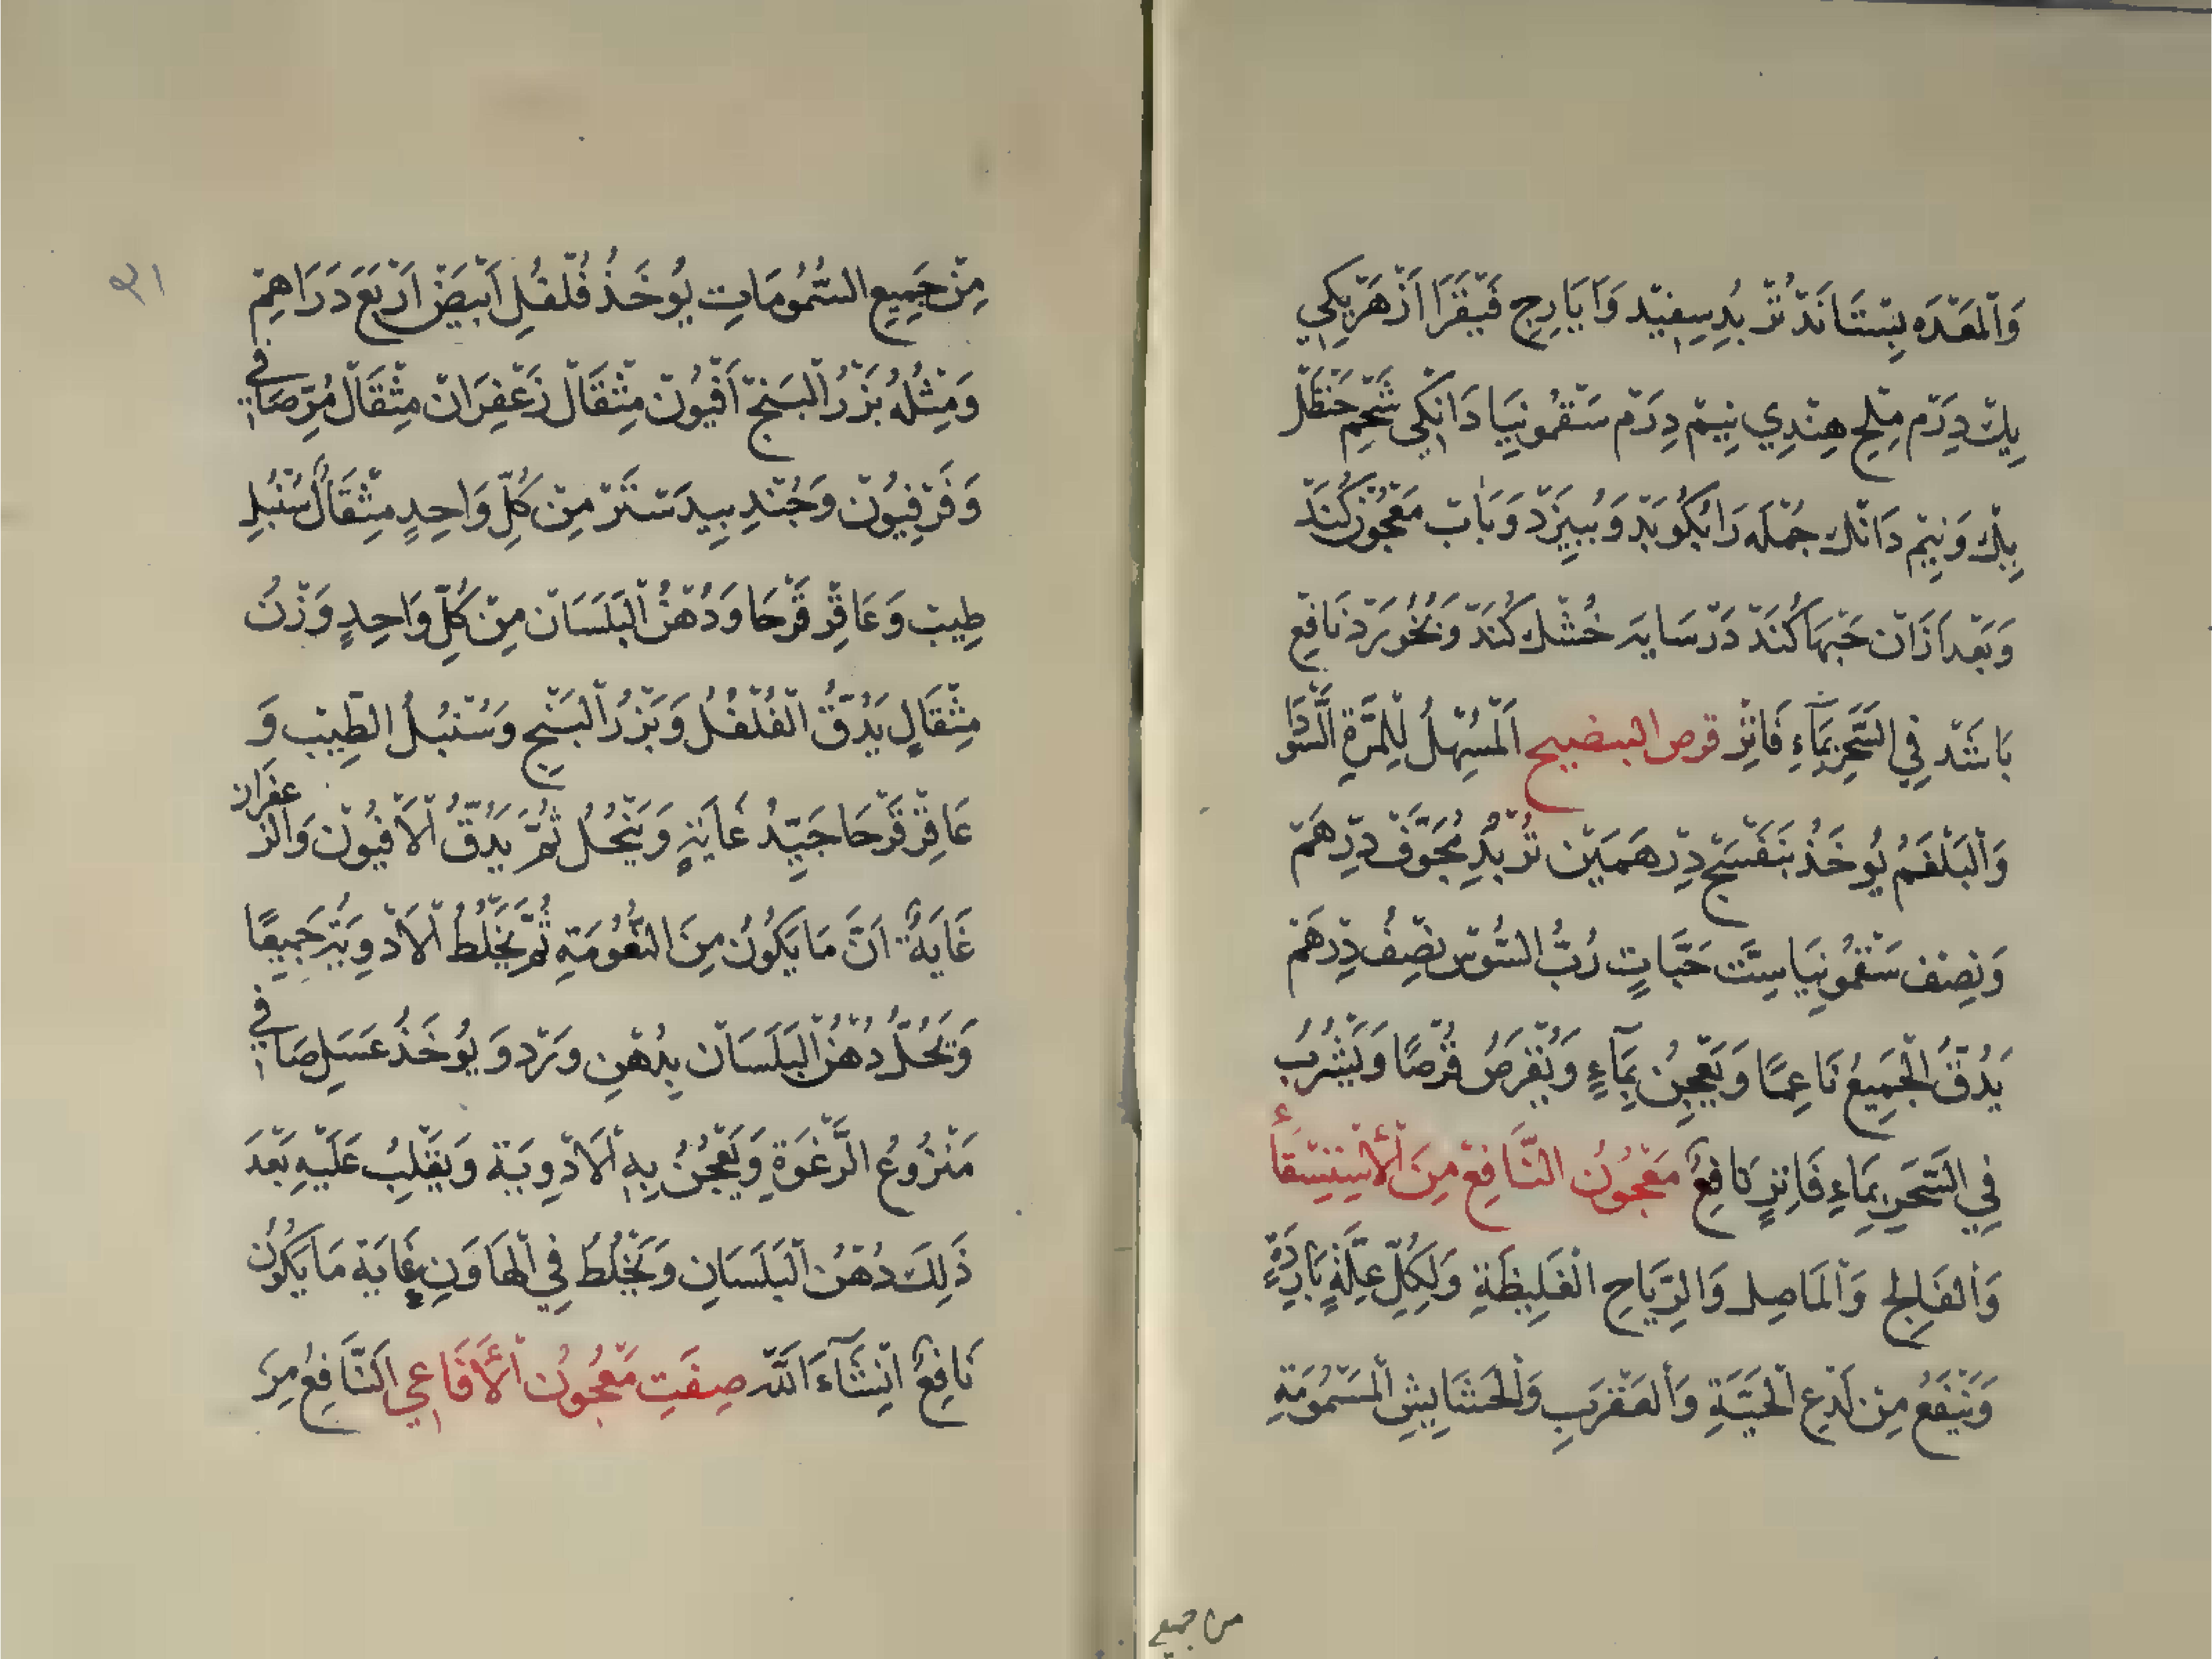 وَالْمَعْدَه بِسْتَانَدْ تُرْبُدِ سِفِيْد وَاَيَارِجِ فَيْقَرَا اَزْ هَرْيَكِي
يَكْ دِرَمْ مِلْحِ هِنْدِي نِيْمْ دِرَمْ سَقْمُونِيَا دَانْكِى شَحْمِ حَنْظَلْ
يَكْ وَنِيْم دَانْك جُمْلَه رَا بُكُوبَدْ وَبِبِيزَدْ وَبَابْ مَعْجُوْن كُنَدْ
وَبَعْد اَزَانْ حَبّهَا كُنَدْ دَرْ سَايَه خُشْك كُنَدْ وَبُخُورَدْ نَافِعْ
بَاشَدْ فِي السَّحَرِ بِمَآءِ فَاتِرْ قرص البنفسج اَلْمُسْهِلُ لِلْمَرَّةِ السَّوْدَا
وَالْبَلْغَمُ يُوخَذُ بَنَفْسَج دِرْهَمَيْن تُرْبُدِ مُجَوَّفْ دِرْهَمْ
وَنِصْف سَقْمُونِيَا سِتَّت حَبَّاتٍ رُبُّ السُّوْس نِصْف دِرْهَمْ
يَدُقُّ الْجَمِيعُ نَاعِمًا وَيَعْجِنُ بِمَآءٍ وَيُقْرَصُ قُرْصًا وَيَشْرَبُ
فِي السَّحَرِ بِمَاءٍ فَاتِرٍ نَافِعٌ مَعْجُونُ النَّافِعْ مِنَ الْأِسْتِسْقَأء
وَالْفَالِجِ وَالْمَفَاصِل وَالرِّيَاحِ الْغَلِيظَةِ وَلِكُلِّ عِلَّةٍ بَارِدَةٍ
وَيَنْفَعُ مِنْ لَدْعِ الْحَيَّةِ وَالْعَقْرَبِ وَالْحَشَايِشِ الْمَسْمُوْمَةِ
من جميع
٩١
مِنْ جَمِيعِ السُّمُومَاتِ يُوخَذُ فُلْفُلِ اَبْيَضْ اَرْبَعَ دَرَاهِمْ
وَمِثْلُهُ بَزْرُ الْبَنْجْ اَفْيُونْ مِثْقَالْ زَعْفِرَانْ مِثْقَالْ مُرِّ صَافِي
وَفَرْفِيُوْن وَجُنْدِ بِيدَسْتَرْ مِنْ كُلِّ وَاحِدٍ مِثْقَالُ سُنْبُلِ
طِيبْ وَعَاقِرْ قَرْحَا وَدُهْنُ الْبَلَسَانْ مِنْ كُلِّ وَاحِدٍ وَزْنَ
مِثْقَالٍ يَدُقُّ الْفُلْفُلُ وَبَزْرُ الْبَنْجِ وَسُنْبُلُ الطِّيْبْ وَ
عَاقِرْ قَرْحَا جَيِّدُ غَايَةٍ وَيَنْخُلُ ثُمَّ يَدُقُّ الْاَفْيُوْن وَالزَعفَران
غَايَةٌ اَنَّ مَا يَكُوْنُ مِنَ النُّعُومَةِ ثُمَّ يَخْلُطُ الْاَدْوِيَةِ جَمِيعًا
وَيَحُلُّ دُهْنُ الْبَلَسَانْ بِدُهْنِ وَرْد وَيُوخَذُ عَسَلِ صَافِي
مَنْزُوعُ الرَّغْوَةِ وَيَعْجُنُ بِهِ الْاَدْوِيَة وَيَقْلِبُ عَلَيْهِ بَعْدَ
ذَلِكَ دُهْنُ الْبَلَسَانِ وَيَخْلُطُ فِي الْهَاوَنِ غَايَة مَا يَكُوْنُ
نَافِعٌ اِنْشَآءَ اللّٰه صِفَتِ مَعْجُوْن الْأَفَاعِي النَّافِعُ مِنَ